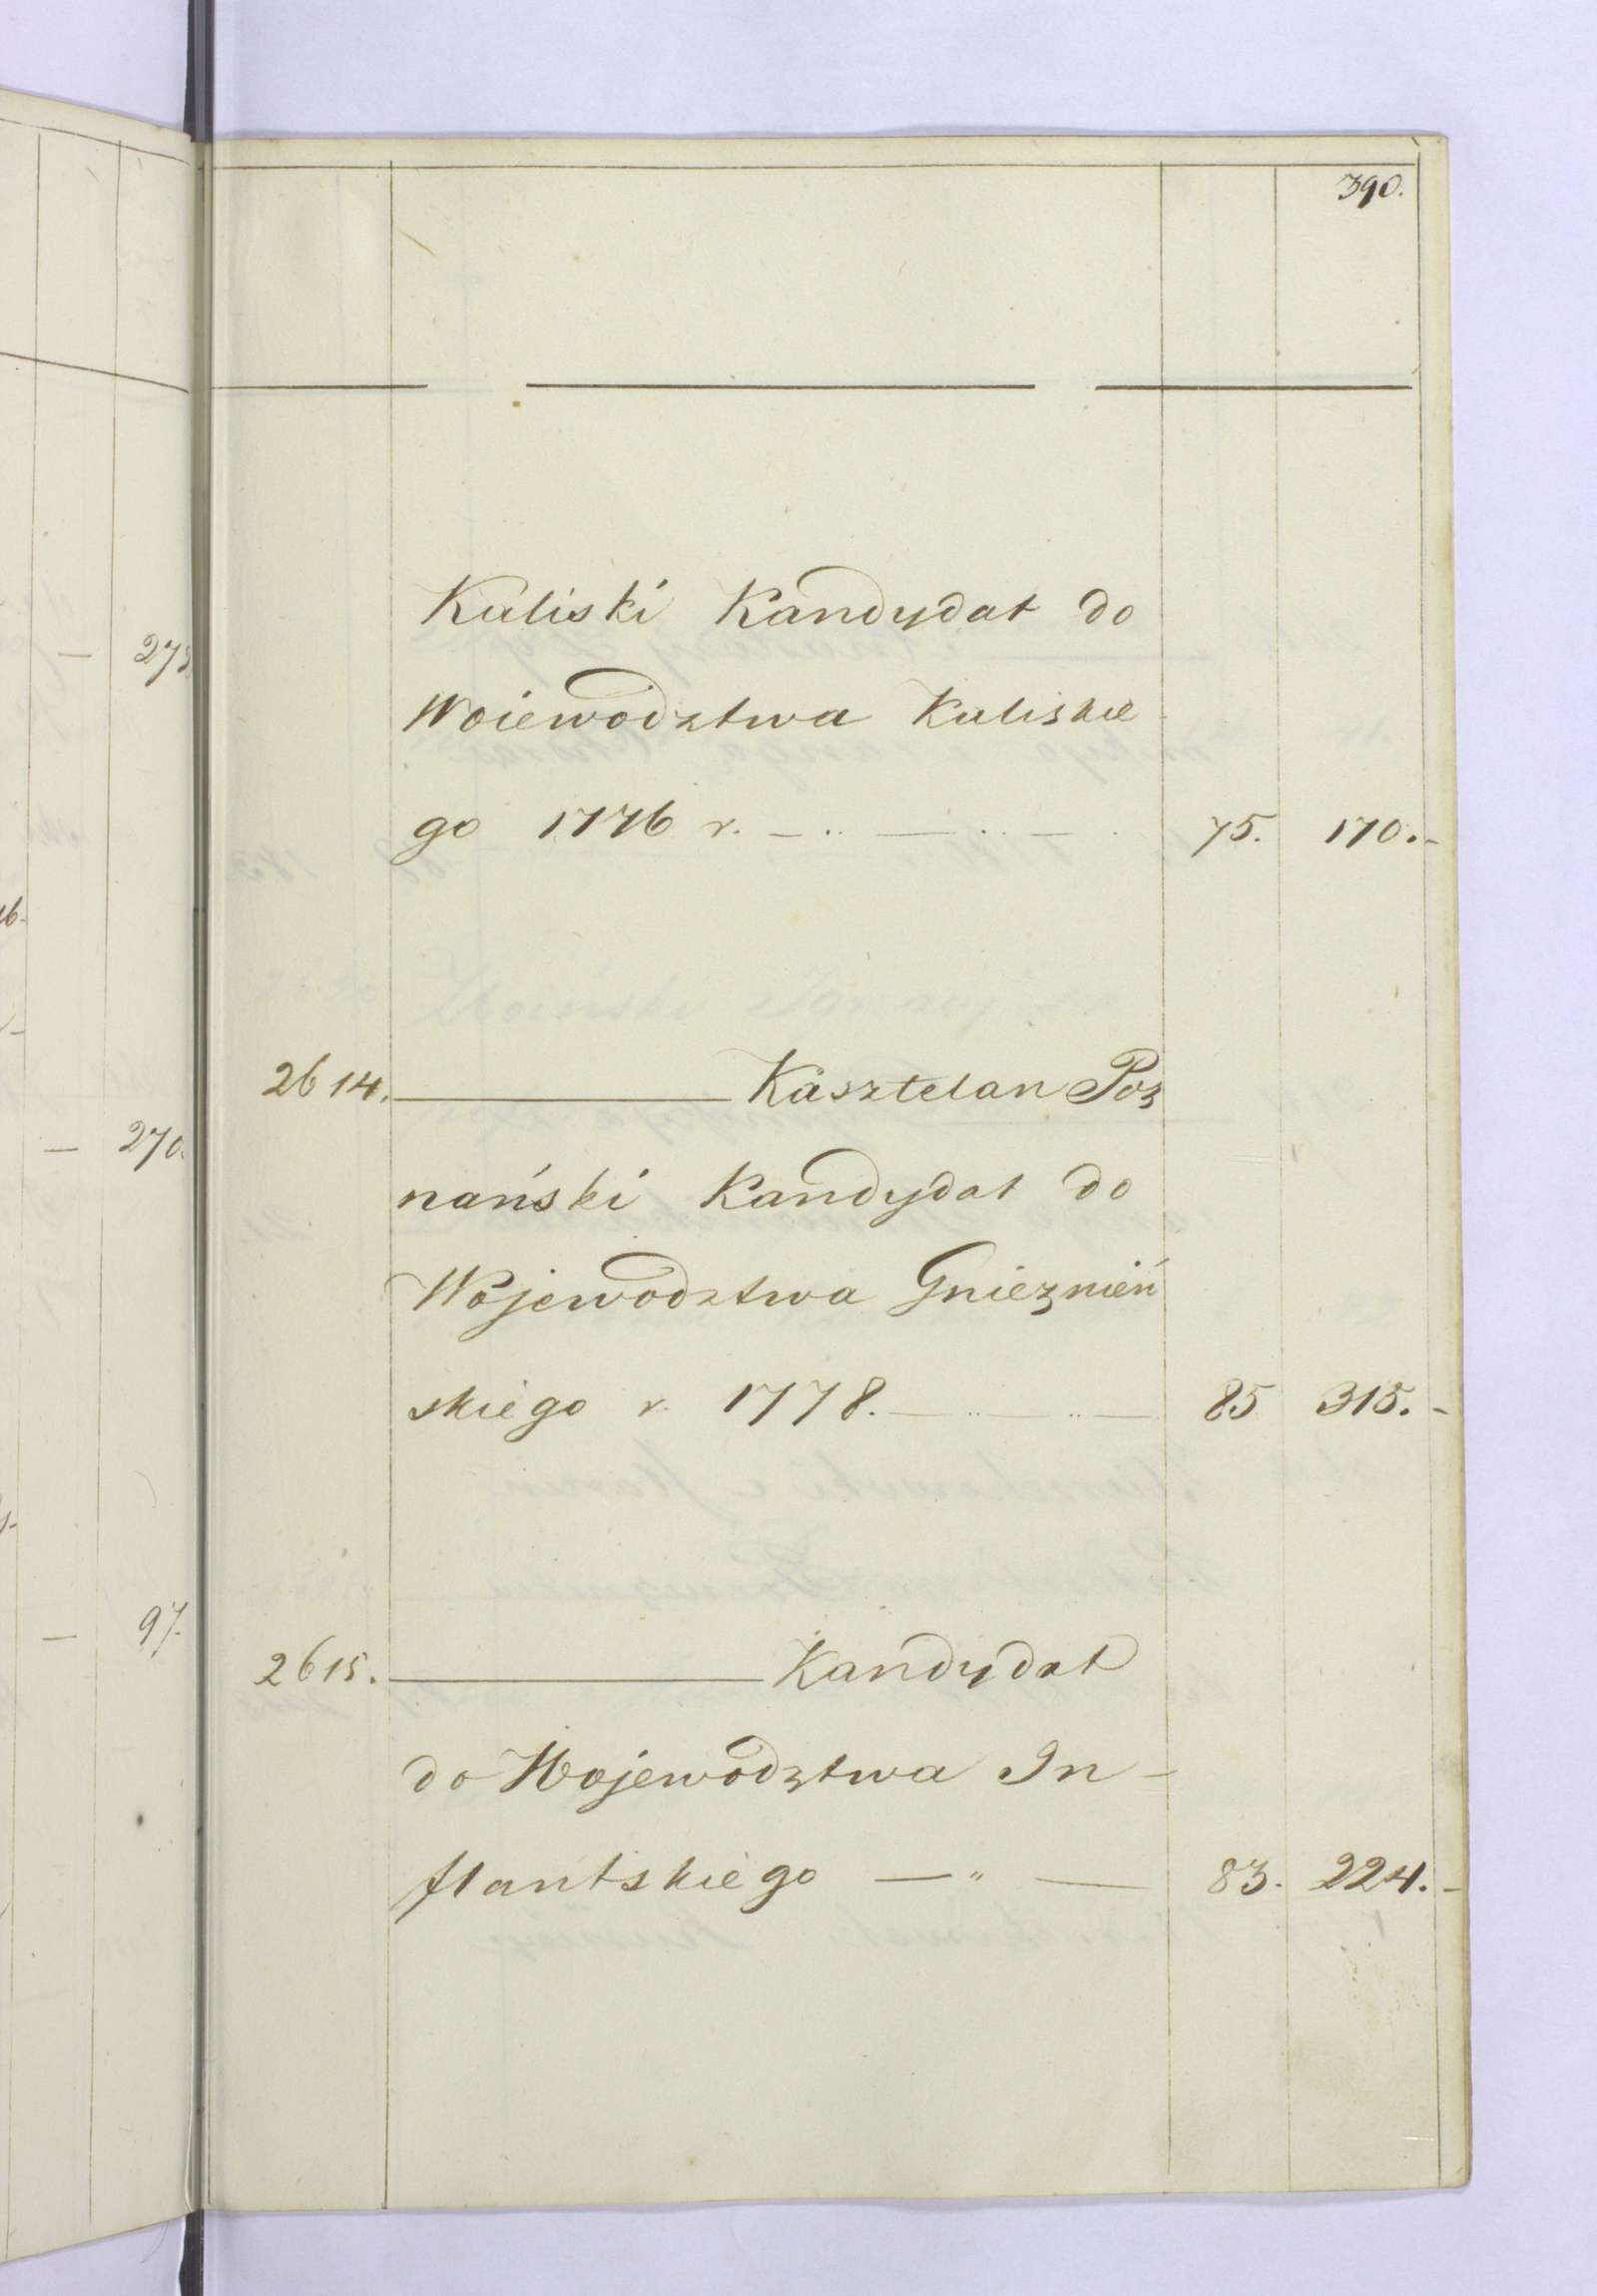 390.
Kaliski Kandydat do
Woiewodztwa Kaliskie
go 1776 r. — .. — .. — 75. 170.-
2614. ——— Kasztelan Poz
nański Kandydat do
Wojewodztwa Gniezneń
skiego r. 1778. — .. — .. — 85 315.-
2615. ——— Kandydat
do Wojewodztwa In-
flantskiego — " — 83. 224.-
— 270.
— 97.